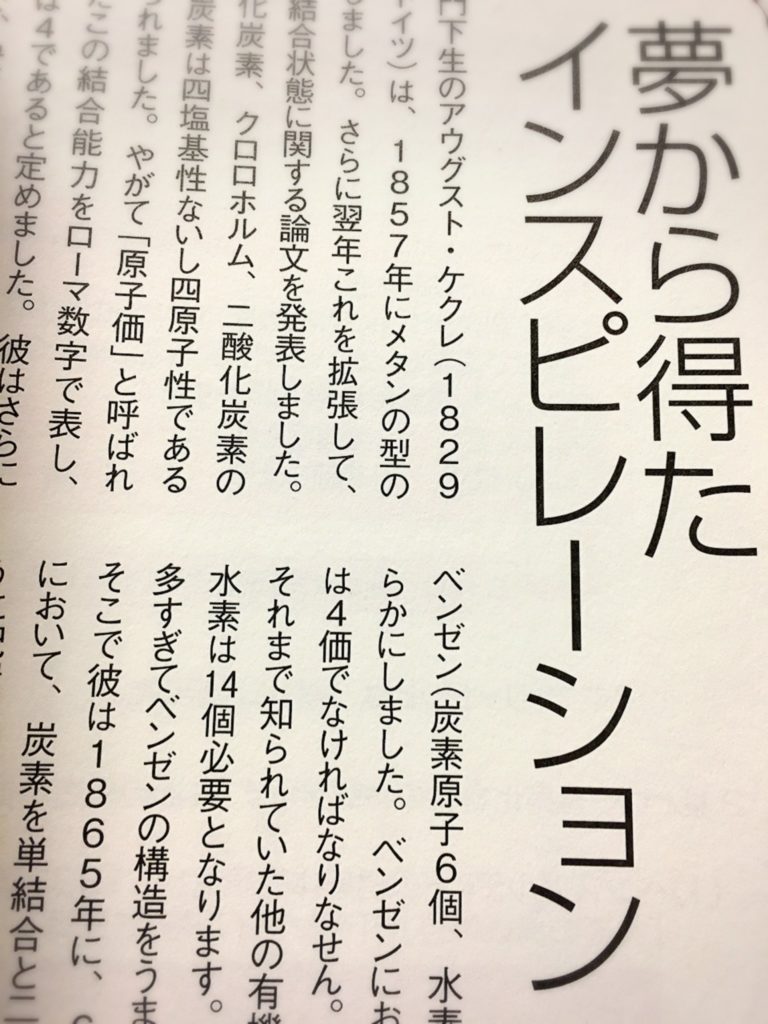 夢から得た
インスピレーション
門下生のアウグスト・ケクレ（1829
イツ）は、1857年にメタンの型の
しました。さらに翌年これを拡張して、
結合状態に関する論文を発表しました。
化炭素、クロロホルム、二酸化炭素の
炭素は四塩基性ないし四原子性である
られました。やがて「原子価」と呼ばれ
たこの結合能力をローマ数字で表し、
は4であると定めました。彼はさらに
ベンゼン（炭素原子6個、水素
らかにしました。ベンゼンにお
は4価でなければなりなせん。
それまで知られていた他の有機
水素は14個必要となります。
多すぎてベンゼンの構造をうま
そこで彼は1865年に、
において、炭素を単結合と二